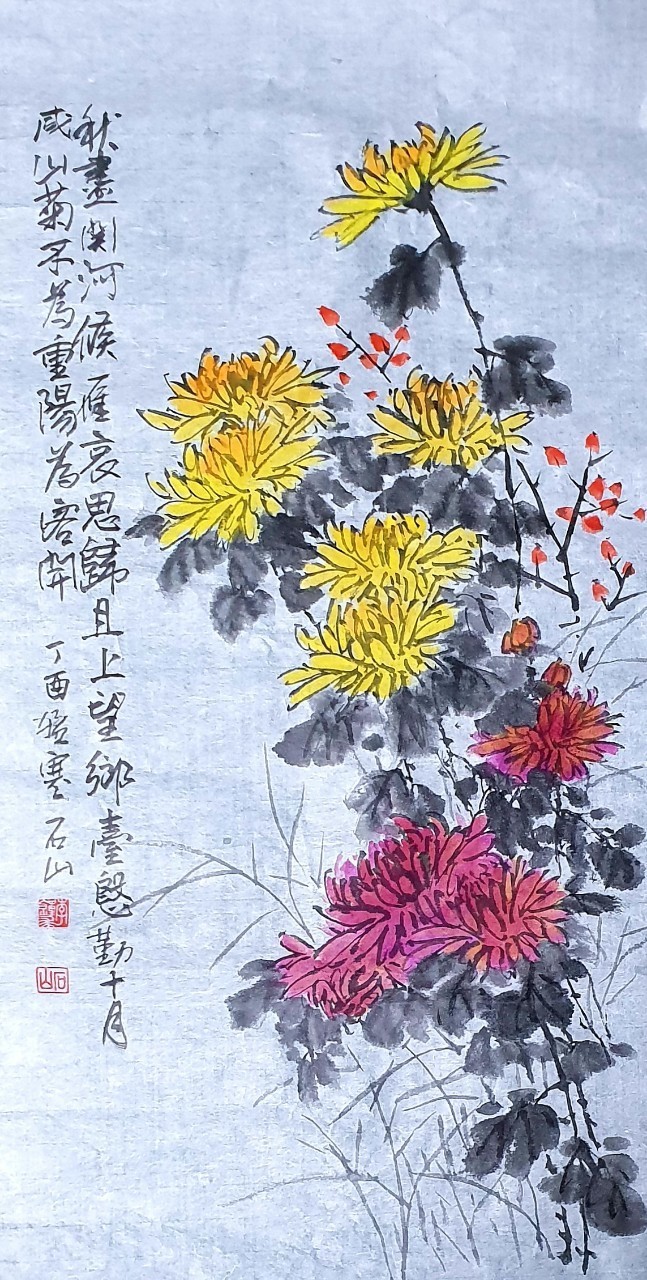 秋盡關河候雁哀思歸且上望鄉臺慇勤十月
咸山菊不為重陽為客開
丁酉孟寒 石山
石山